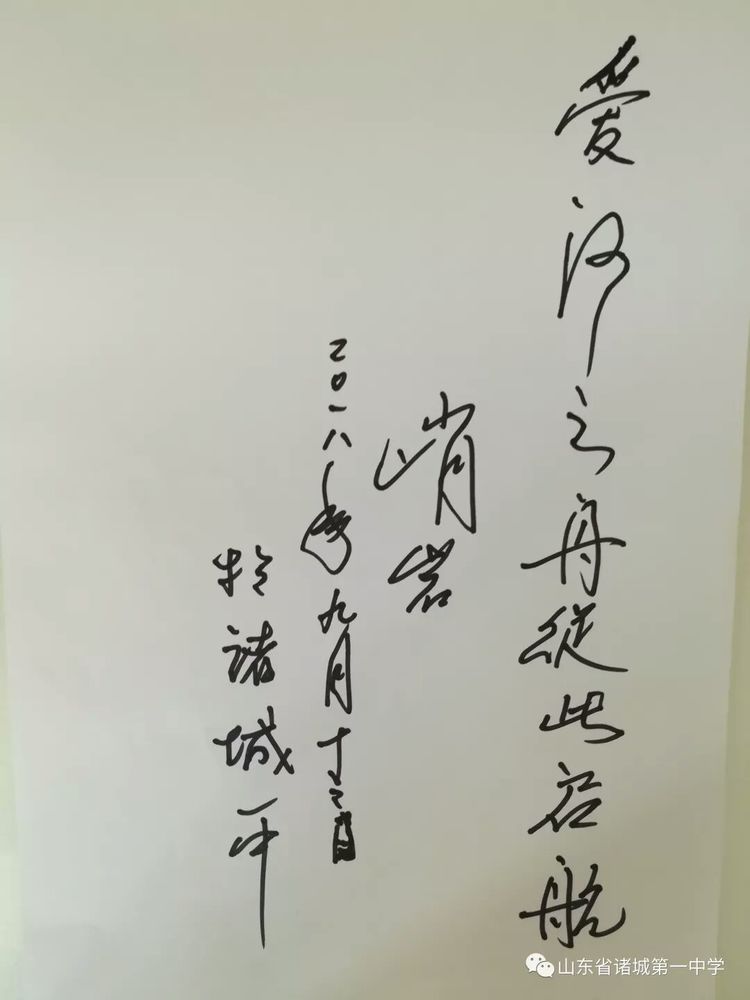 爱河之舟從此启航
峭岩
二〇一八年九月十二日
於诸城一中
山东省诸城第一中学